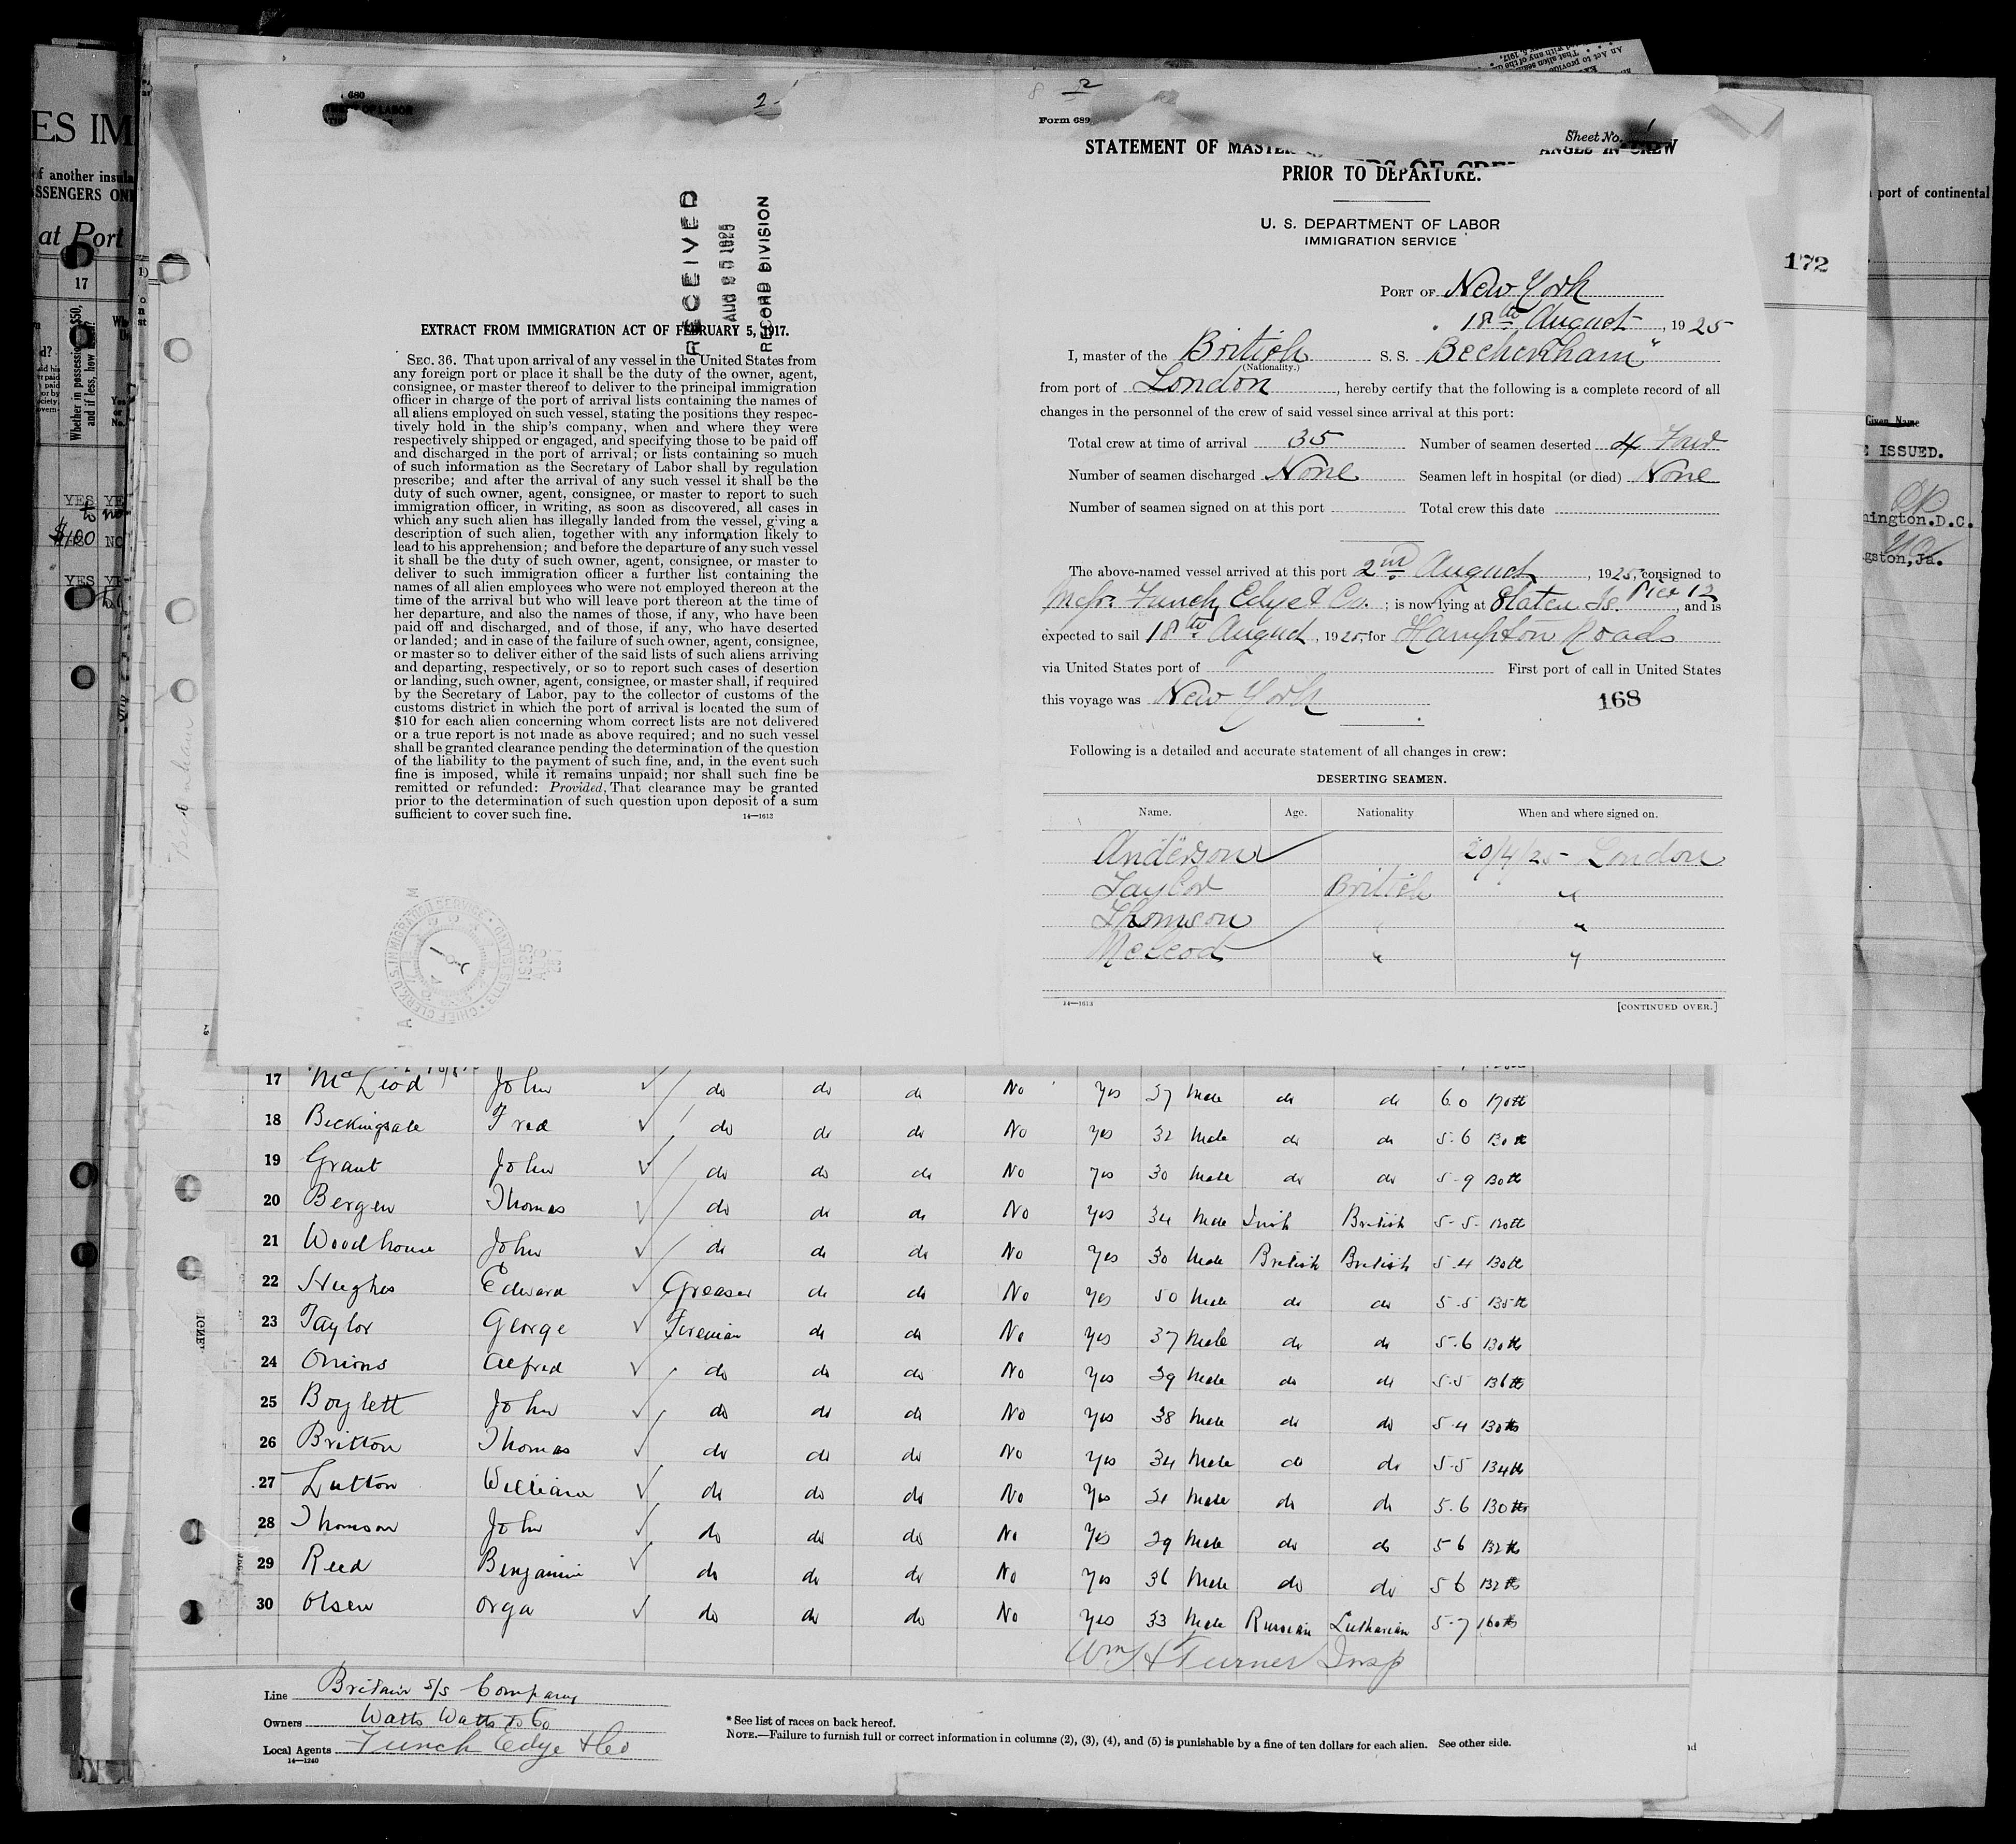 680
2
EXTRACT FROM IMMIGRATION ACT OF FEBRUARY 5, 1917.
RECEIVED
RECORD DIVISION
SEC. 36. That upon arrival of any vessel in the United States from
any foreign port or place it shall be the duty of the owner, agent,
consignee, or master thereof to deliver to the principal immigration
officer in charge of the port of arrival lists containing the names of
all aliens employed on such vessel, stating the positions they respec-
tively hold in the ship's company, when and where they were
respectively shipped or engaged, and specifying those to be paid off
and discharged in the port of arrival; or lists containing so much
of such information as the Secretary of Labor shall by regulation
prescribe; and after the arrival of any such vessel it shall be the
duty of such owner, agent, consignee, or master to report to such
immigration officer, in writing, as soon as discovered, all cases in
which any such alien has illegally landed from the vessel, giving a
description of such alien, together with any information likely to
lead to his apprehension; and before the departure of any such vessel
it shall be the duty of such owner, agent, consignee, or master to
deliver to such immigration officer a further list containing the
names of all alien employees who were not employed thereon at the
time of the arrival but who will leave port thereon at the time of
her departure, and also the names of those, if any, who have been
paid off and discharged, and of those, if any, who have deserted
or landed; and in case of the failure of such owner, agent, consignee,
or master so to deliver either of the said lists of such aliens arriving
and departing, respectively, or so to report such cases of desertion
or landing, such owner, agent, consignee, or master shall, if required
by the Secretary of Labor, pay to the collector of customs of the
customs district in which the port of arrival is located the sum of
$10 for each alien concerning whom correct lists are not delivered
or a true report is not made as above required; and no such vessel
shall be granted clearance pending the determination of the question
of the liability to the payment of such fine, and, in the event such
fine is imposed, while it remains unpaid; nor shall such fine be
remitted or refunded: Provided, That clearance may be granted
prior to the determination of such question upon deposit of a sum
sufficient to cover such fine.
14—1613
Form 689
Sheet No. 1
STATEMENT OF MASTER CHANGES IN CREW
PRIOR TO DEPARTURE.
U. S. DEPARTMENT OF LABOR
IMMIGRATION SERVICE
PORT OF New York
18th August, 1925
I, master of the British S. S. Beckenham"
(Nationality.)
from port of London, hereby certify that the following is a complete record of all
changes in the personnel of the crew of said vessel since arrival at this port:
Total crew at time of arrival 35 Number of seamen deserted 4 Four
Number of seamen discharged None Seamen left in hospital (or died) None
Number of seamen signed on at this port Total crew this date
The above-named vessel arrived at this port 2nd August, 1925, consigned to
Messrs. Funch, Edye & Co.; is now lying at Staten Is. Pier 12, and is
expected to sail 18th August, 1925, for Hampton Roads
via United States port of First port of call in United States
this voyage was New York
168
Following is a detailed and accurate statement of all changes in crew:
DESERTING SEAMEN.
Name. Age. Nationality When and where signed on.
Anderson 20/4/25 London
Taylor British "
Thomson " "
McLeod " "
14—1613 [CONTINUED OVER.]
172
17 McLeod John do do do No Yes 37 Male do do 6.0 170 lb
18 Beckingsale Fred do do do No Yes 32 Male do do 5.6 130 lb
19 Grant John do do do No Yes 30 Male do do 5-9 130 lb
20 Bergen Thomas do do do No Yes 34 Male Irish British 5-5 130 lb
21 Woodhouse John do do do No Yes 30 Male British British 5.4 130 lb
22 Hughes Edward Greaser do do No Yes 50 Male do do 5.5 135 lb
23 Taylor George Fireman do do No Yes 37 Male do do 5.6 130 lb
24 Onions Alfred do do do No Yes 39 Male do do 5.5 136 lb
25 Boylett John do do do No Yes 38 Male do do 5.4 130 lb
26 Britton Thomas do do do No Yes 34 Male do do 5.5 134 lb
27 Lutton William do do do No Yes 31 Male do do 5.6 130 lb
28 Thomson John do do do No Yes 39 Male do do 5 6 132 lb
29 Reed Benjamin do do do No Yes 36 Male do do 5 6 132 lb
30 Olsen Orga do do do No Yes 33 Male Russian Lutharian 5-7 160 lb
Wm H Turner Insp
Line Britain S/S Company
Owners Watts Watts & Co
Local Agents Funch Edye & Co
14—1240
* See list of races on back hereof.
NOTE.—Failure to furnish full or correct information in columns (2), (3), (4), and (5) is punishable by a fine of ten dollars for each alien. See other side.
ES IM
of another insula
SSENGERS ON
at Port
17
Whether in possession of $50,
and if less, how much?
YES
$100
YES
port of continental
Given Name
ISSUED.
ington.D.C.
gston,Ja.